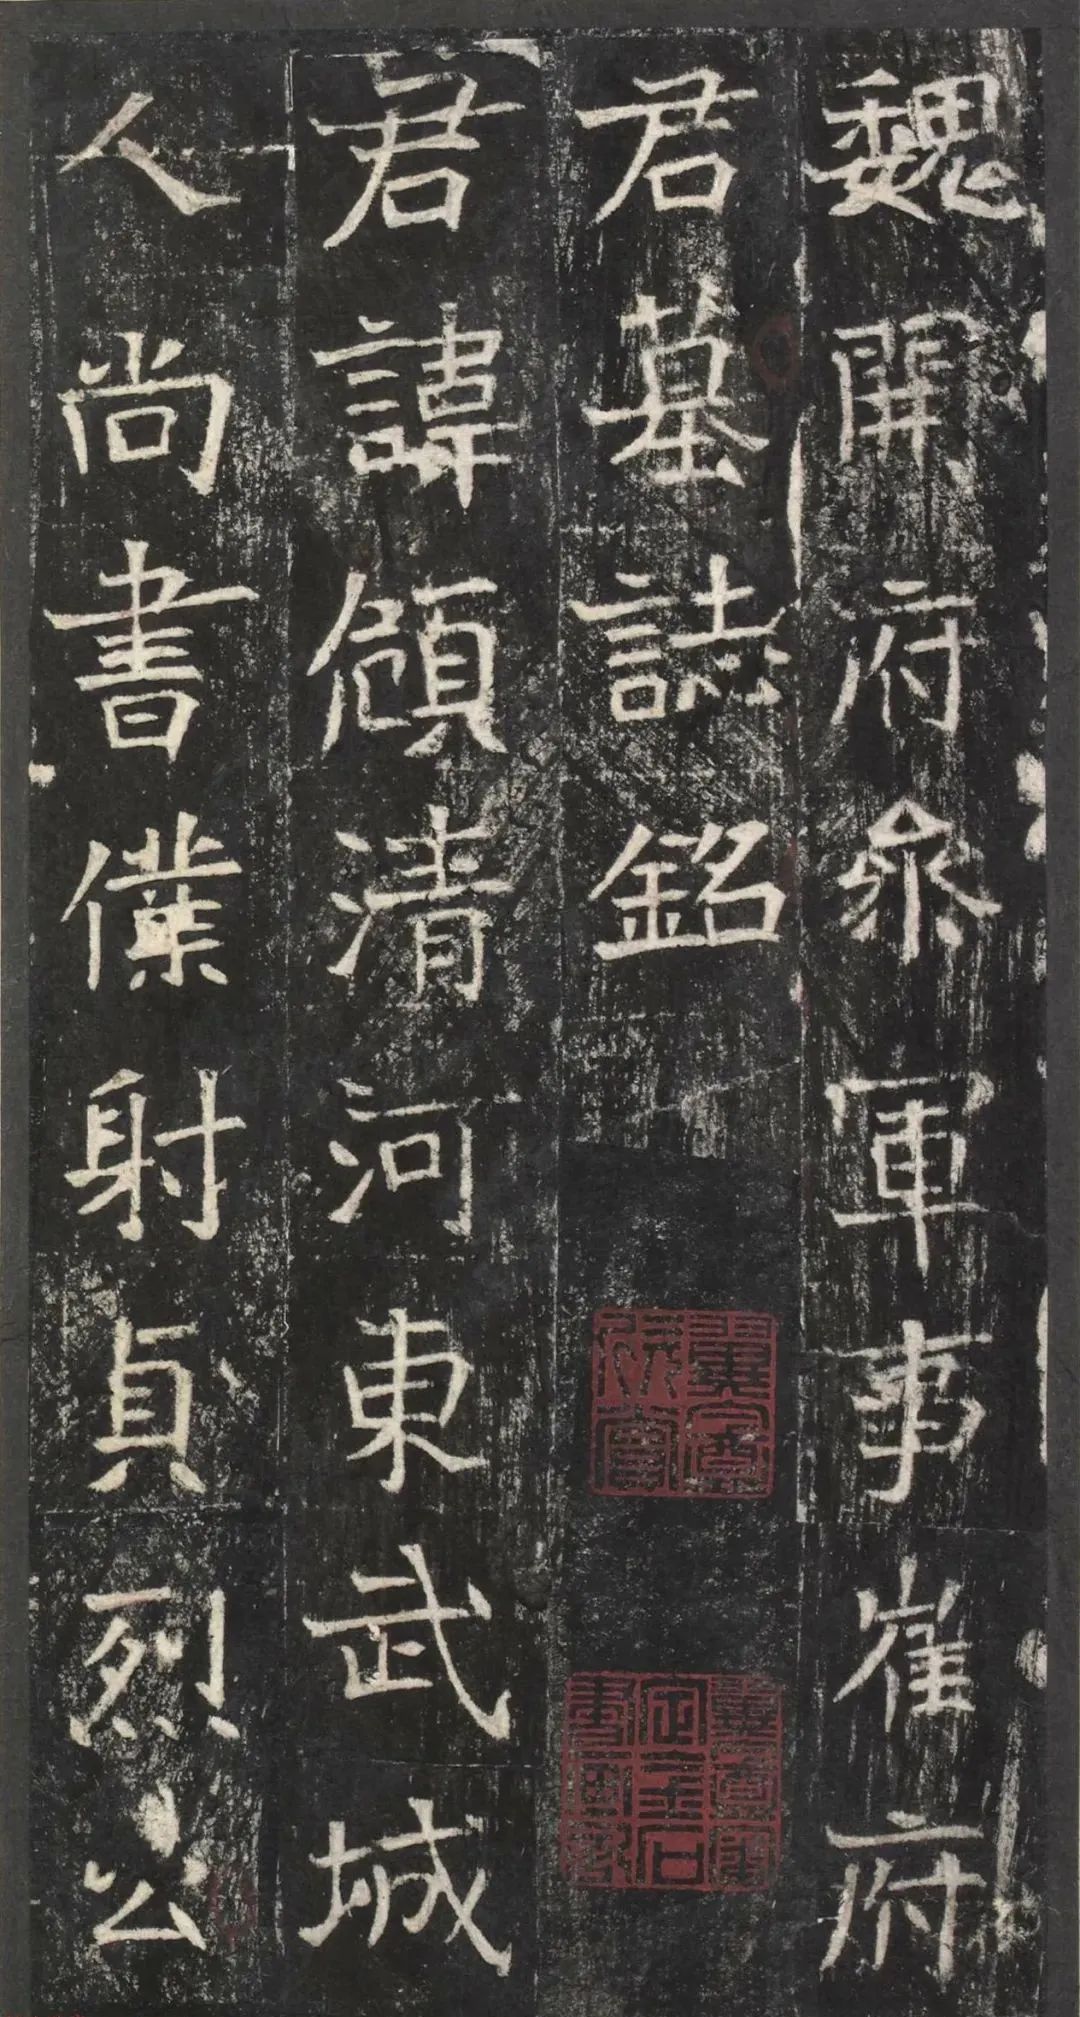 魏開府參軍事崔府
君墓誌銘
君諱頠清河東武城
人尚書僕射貞烈公